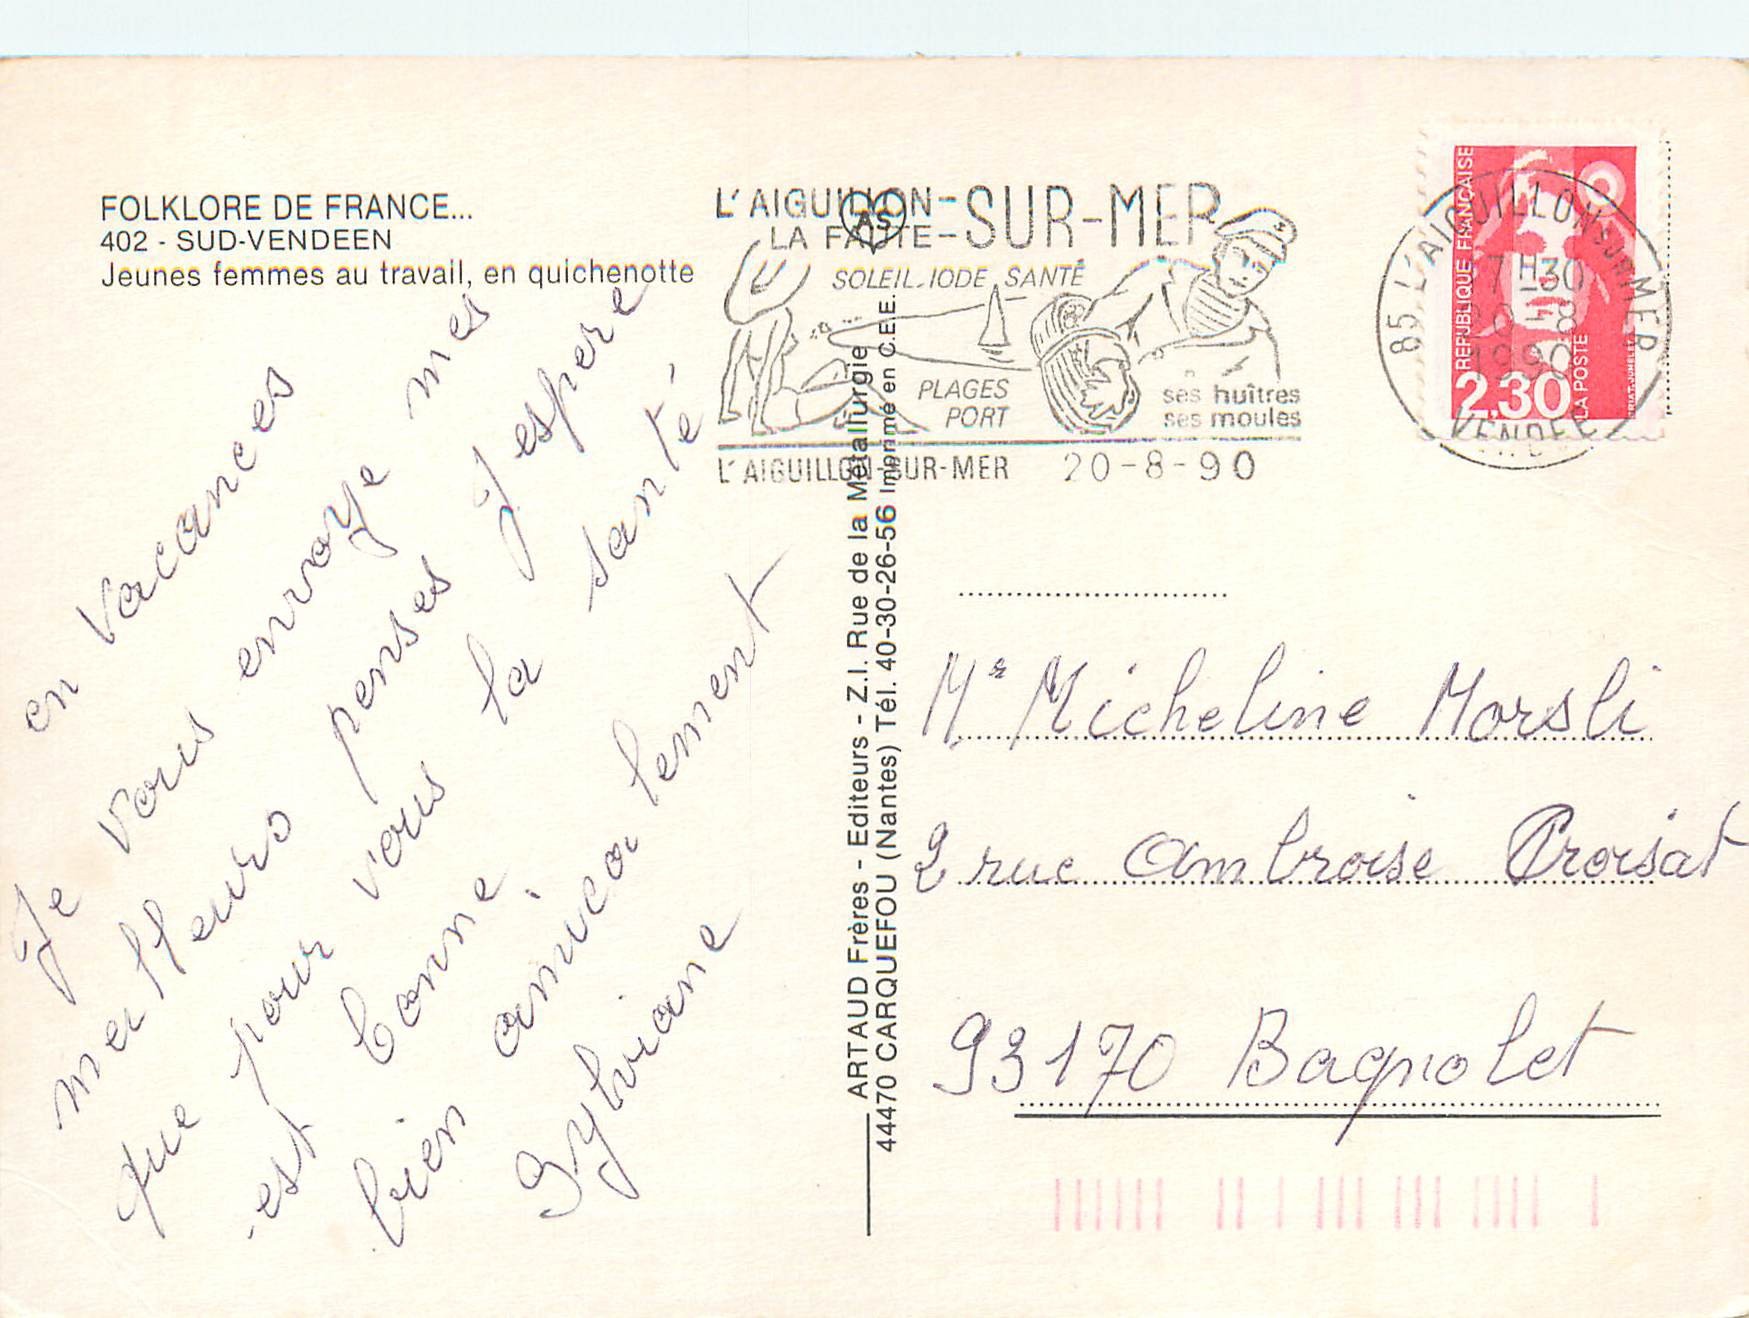 FOLKLORE DE FRANCE...
402 - SUD-VENDEEN
Jeunes femmes au travail, en quichenotte
en vacances
Je vous envoye mes
meilleurs penses j'espere
que pour vous la santé
est bonne.
bien amicalement
Sylviane
ARTAUD Frères - Editeurs - Z.I. Rue de la Métallurgie
44470 CARQUEFOU (Nantes) Tél. 40-30-26-56 Imprimé en C.E.E.
AS
L'AIGUILLON-
LA FAUTE-SUR-MER
SOLEIL-IODE SANTÉ
PLAGES
PORT
ses huîtres
ses moules
L'AIGUILLON-SUR-MER 20-8-90
REPUBLIQUE FRANÇAISE
2,30
LA POSTE
85 L'AIGUILLON SUR MER
17H30
20-8
1990
VENDEE
Mr Micheline Morsli
2 rue Ambroise Croisat
93170 Bagnolet